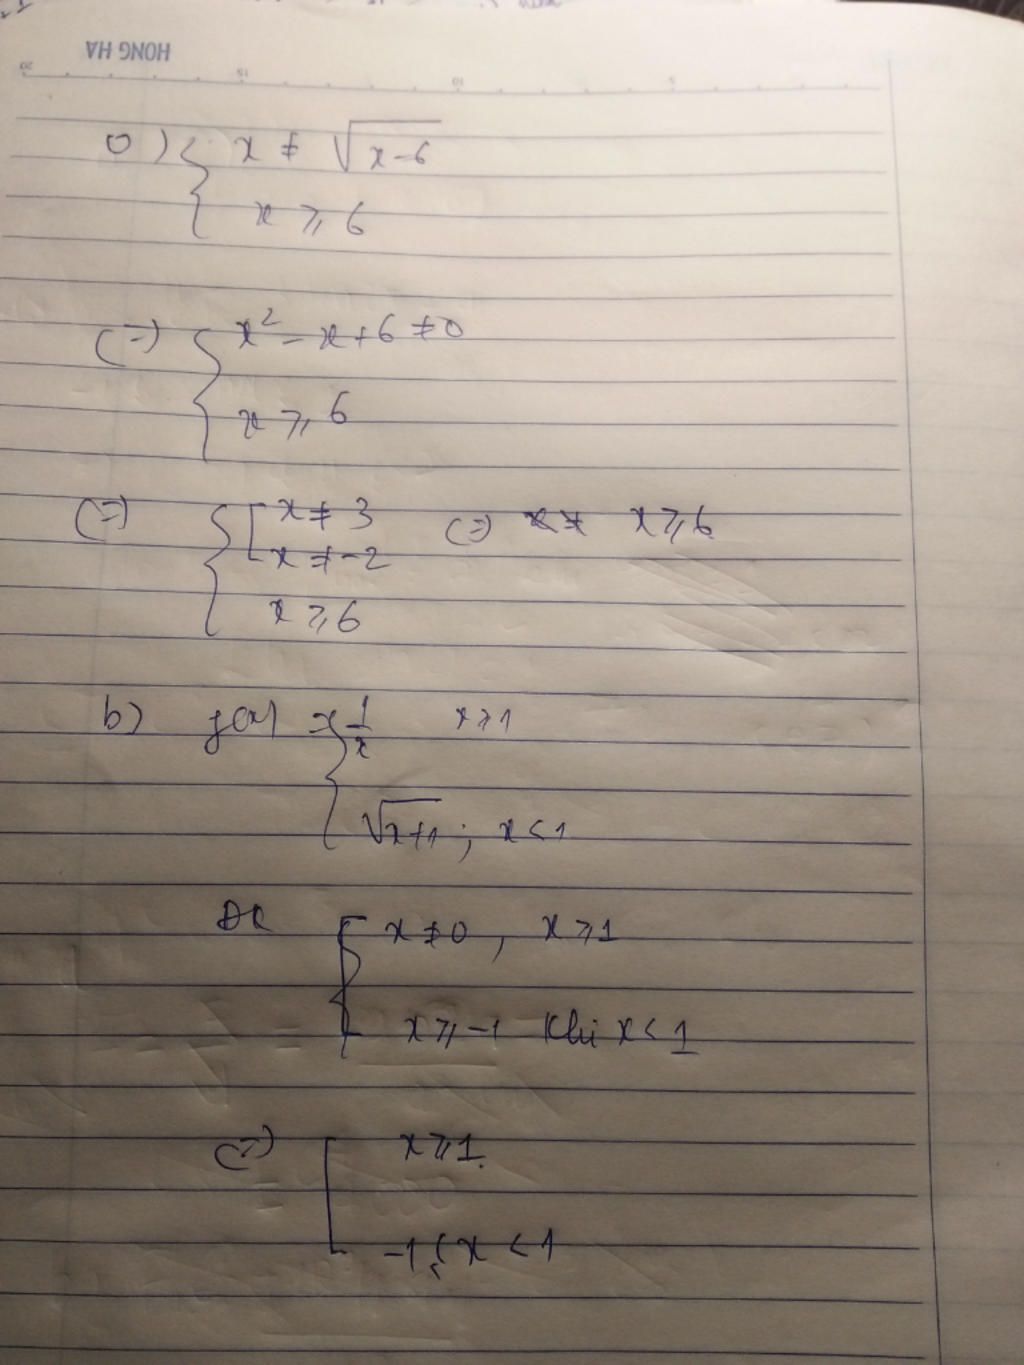 HONG HA
20 15 10 5
a) { x ≠ √x-6
x ⩾ 6
(=) { x² - x + 6 ≠ 0
x ⩾ 6
(=) { [ x ≠ 3 (=) x ⩾ 6
x ≠ -2
x ⩾ 6
b) f(x) = { 1/x x ⩾ 1
√x+1 ; x < 1
ĐK { x ≠ 0 , x ⩾ 1
x ⩾ -1 khi x < 1
(=) [ x ⩾ 1.
-1 ⩽ x < 1